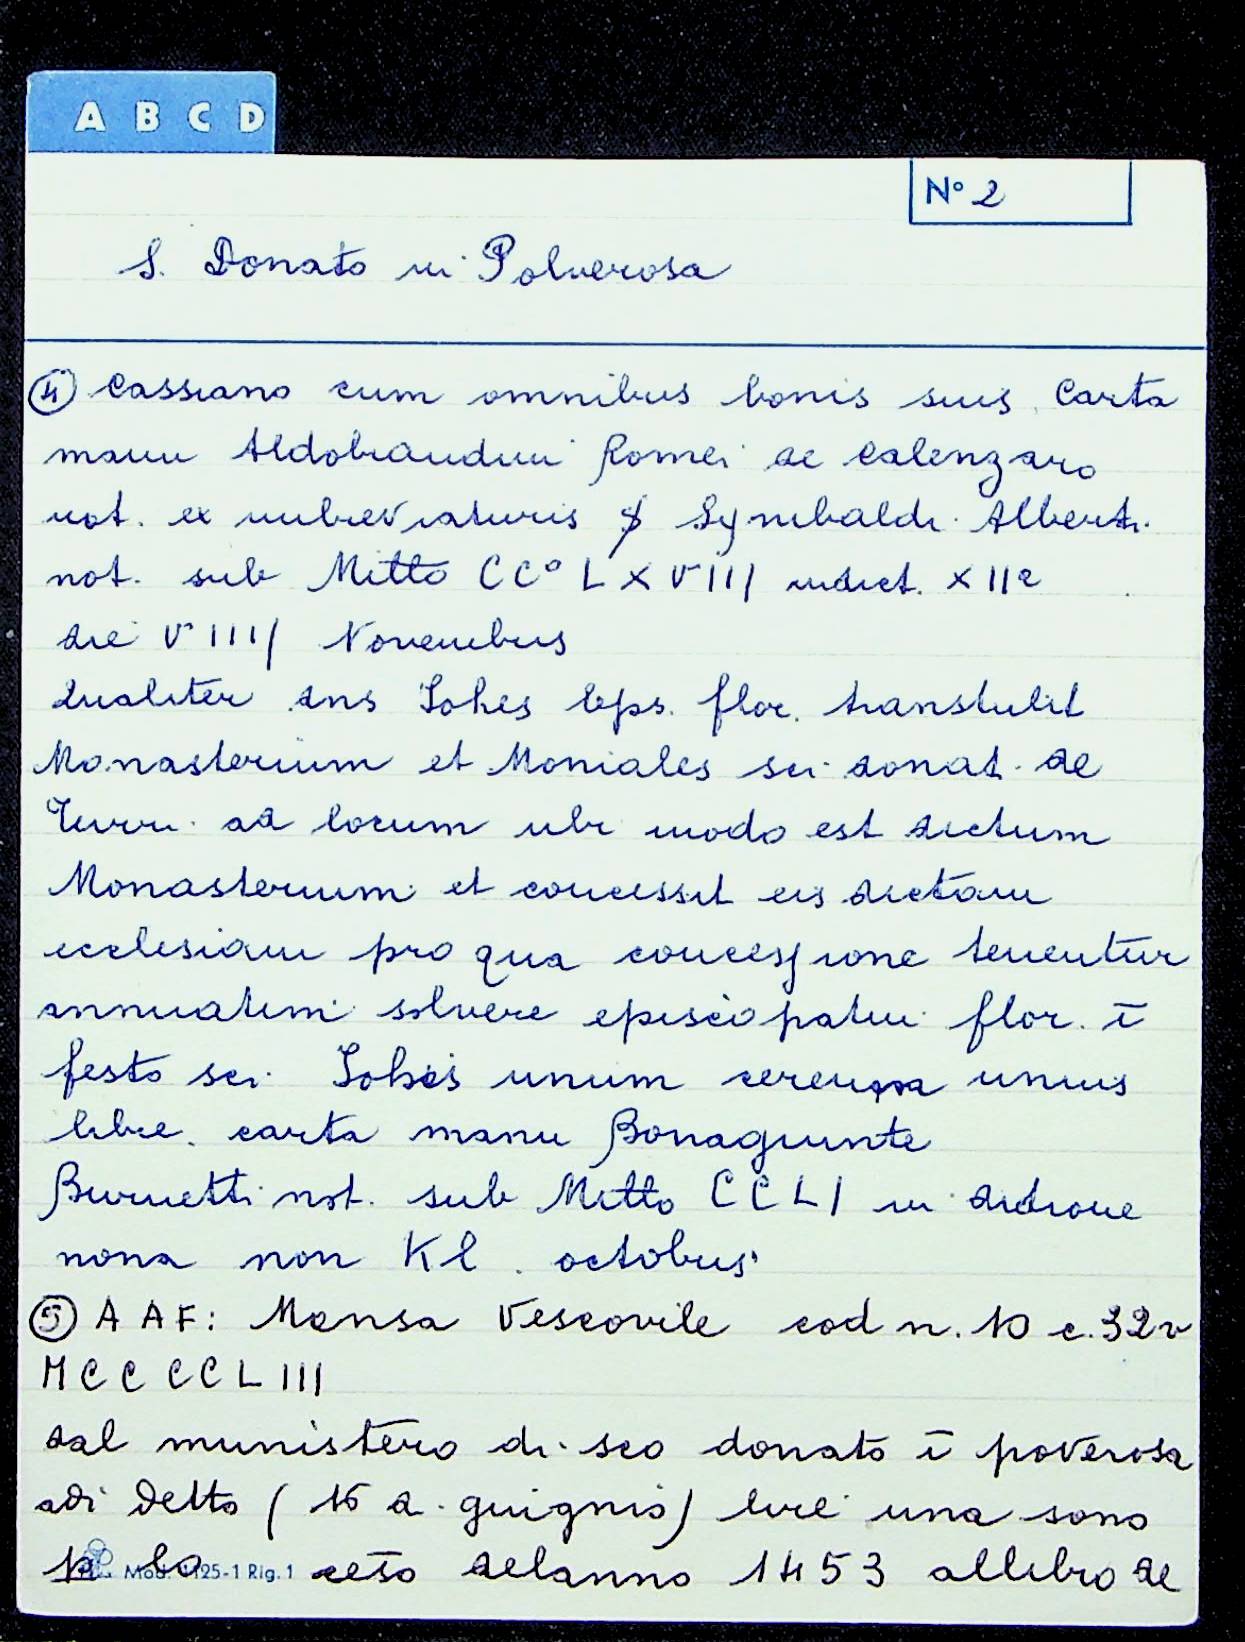 A B C D
N° 2
S. Donato in Polverosa
④ Cassiano cum omnibus bonis suis. Carta
manu Aldobrandini Romei de Calenzaro
not. ex imbreviaturis Synibaldi Alberti
not. sub Mitto CC° LXVIII indict. XIIa
die VIIII Novembris
Qualiter dns Johes eps. flor. transtulit
Monasterium et Moniales sci donat. de
Turri ad locum ubi modo est dictum
Monasterium et concessit eis dictam
ecclesiam pro qua concessione tenentur
annuatim solvere episcopatui flor. ī
festo sci Johis unum cereum unius
libre. carta manu Bonagiunte
Burnetti not. sub Mitto CCLI in dictione
nona non Kl. octobris
⑤ AAF: Mensa Vescovile cod n. 10 c. 32v
MCCCCLIII
dal munistero di sco donato ī poverosa
adi detto (16 d. guignio) lire una sono
ceto delanno 1453 allibro de
Mod. 1125-1 Rig. 1